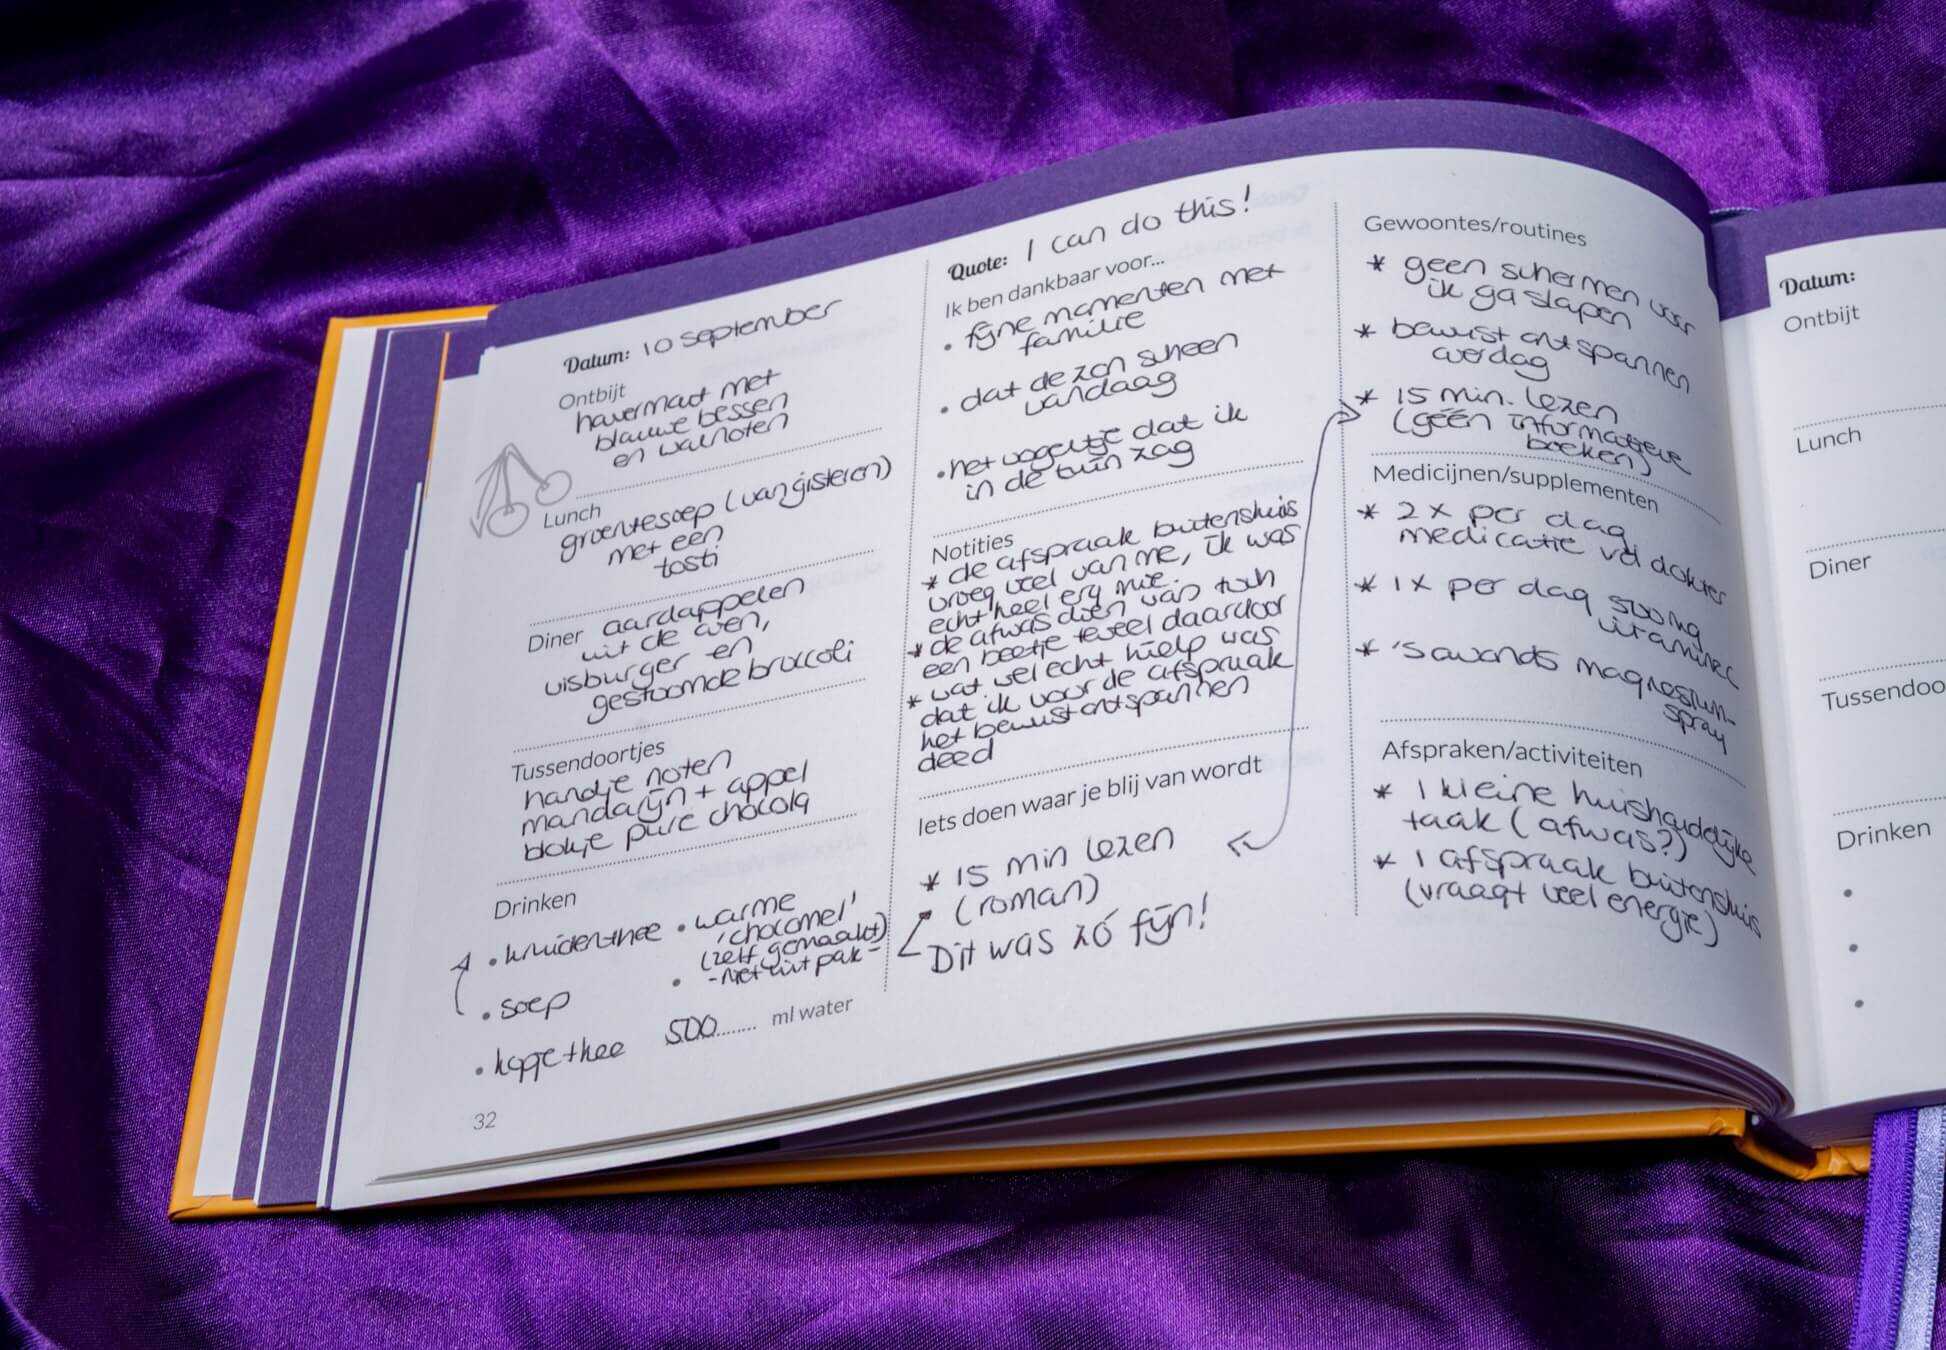 Datum: 10 september
Ontbijt
havermout met
blauwe bessen
en walnoten
Lunch
groentesoep (van gisteren)
met een
tosti
Diner aardappelen
uit de oven,
visburger en
gestoomde broccoli
Tussendoortjes
handje noten
mandarijn + appel
blokje pure chocola
Drinken
• kruidenthee
• soep
• kopje thee
• warme
'chocomel'
(zelf gemaakt)
- niet uit pak -
•
500........ ml water
32
Quote: I can do this!
Ik ben dankbaar voor...
• fijne momenten met
familie
• dat de zon scheen
vandaag
• het vogeltje dat ik
in de tuin zag
Notities
* de afspraak buitenshuis
vroeg veel van me, ik was
echt heel erg moe.
* de afwas doen was toch
een beetje teveel daardoor
* wat wel echt hielp was
dat ik voor de afspraak
het bewust ontspannen
deed
Iets doen waar je blij van wordt
* 15 min lezen
(roman)
Dit was zó fijn!
Gewoontes/routines
* geen schermen voor
ik ga slapen
* bewust ontspannen
overdag
* 15 min. lezen
(géén informatieve
boeken)
Medicijnen/supplementen
* 2x per dag
medicatie vd dokter
* 1x per dag 500mg
vitamine C
* 's avonds magnesium-
spray
Afspraken/activiteiten
* 1 kleine huishoudelijke
taak (afwas?)
* 1 afspraak buitenshuis
(vraagt veel energie)
Datum:
Ontbijt
Lunch
Diner
Tussendoo
Drinken
•
•
•